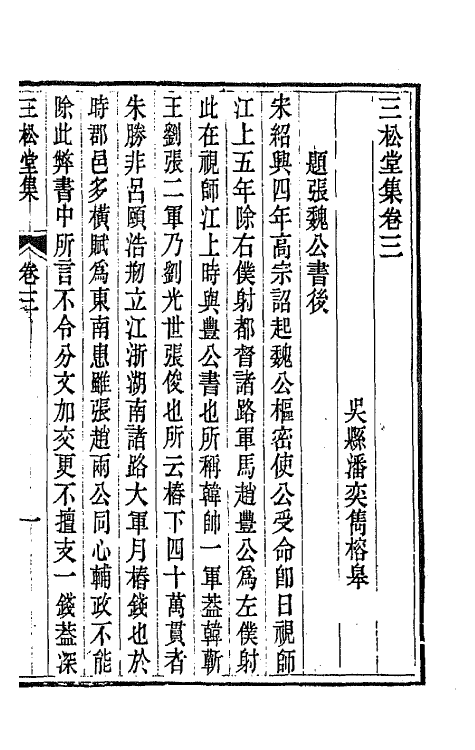 三松堂集卷三
吳縣潘奕雋榕皋
題張魏公書後
宋紹興四年高宗詔起魏公樞密使公受命卽日視師
江上五年除右僕射都督諸路軍馬趙豐公爲左僕射
此在視師江上時與豐公書也所稱韓帥一軍葢韓蘄
王劉張二軍乃劉光世張俊也所云樁下四十萬貫者
朱勝非呂頤浩刱立江浙湖南諸路大軍月樁錢也於
時郡邑多橫賦爲東南患雖張趙兩公同心輔政不能
除此弊書中所言不令分文加交更不擅支一錢葢深
三松堂集
卷三
一